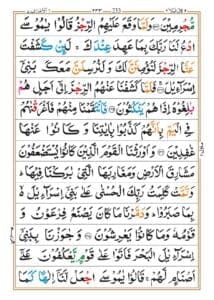 مُّجْرِمِيْنَ ۝ وَلَمَّا وَقَعَ عَلَيْهِمُ الرِّجْزُ قَالُوْا يٰمُوْسَى
ادْعُ لَنَا رَبَّكَ بِمَا عَهِدَ عِنْدَكَ ۚ لَئِنْ كَشَفْتَ
عَنَّا الرِّجْزَ لَنُؤْمِنَنَّ لَكَ وَلَنُرْسِلَنَّ مَعَكَ بَنِيْٓ
اِسْرَآءِيْلَ ۝ فَلَمَّا كَشَفْنَا عَنْهُمُ الرِّجْزَ اِلٰٓى اَجَلٍ هُمْ
بٰلِغُوْهُ اِذَا هُمْ يَنْكُثُوْنَ ۝ فَانْتَقَمْنَا مِنْهُمْ فَاَغْرَقْنٰهُمْ
فِى الْيَمِّ بِاَنَّهُمْ كَذَّبُوْا بِاٰيٰتِنَا وَكَانُوْا عَنْهَا
غٰفِلِيْنَ ۝ وَاَوْرَثْنَا الْقَوْمَ الَّذِيْنَ كَانُوْا يُسْتَضْعَفُوْنَ
مَشَارِقَ الْاَرْضِ وَمَغَارِبَهَا الَّتِيْ بٰرَكْنَا فِيْهَا ؕ
وَتَمَّتْ كَلِمَتُ رَبِّكَ الْحُسْنٰى عَلٰى بَنِيْٓ اِسْرَآءِيْلَ ۙ
بِمَا صَبَرُوْا ؕ وَدَمَّرْنَا مَا كَانَ يَصْنَعُ فِرْعَوْنُ وَ
قَوْمُهٗ وَمَا كَانُوْا يَعْرِشُوْنَ ۝ وَجٰوَزْنَا بِبَنِيْٓ
اِسْرَآءِيْلَ الْبَحْرَ فَاَتَوْا عَلٰى قَوْمٍ يَّعْكُفُوْنَ عَلٰٓى
اَصْنَامٍ لَّهُمْ ۚ قَالُوْا يٰمُوْسَى اجْعَلْ لَّنَآ اِلٰهًا كَمَا